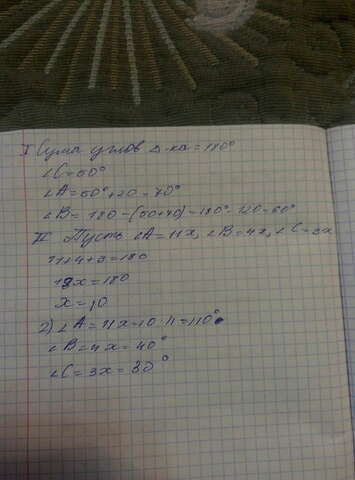 I Сума углов Δ-ка = 180°
∠C = 50°
∠A = 50° + 20 = 70°
∠B = 180 - (50+70) = 180° - 120 = 60°
II Пусть ∠A = 11x, ∠B = 4x, ∠C = 3x
11+4+3 = 180
18x = 180
x = 10
2) ∠A = 11x = 10·11 = 110°
∠B = 4x = 40°
∠C = 3x = 30°